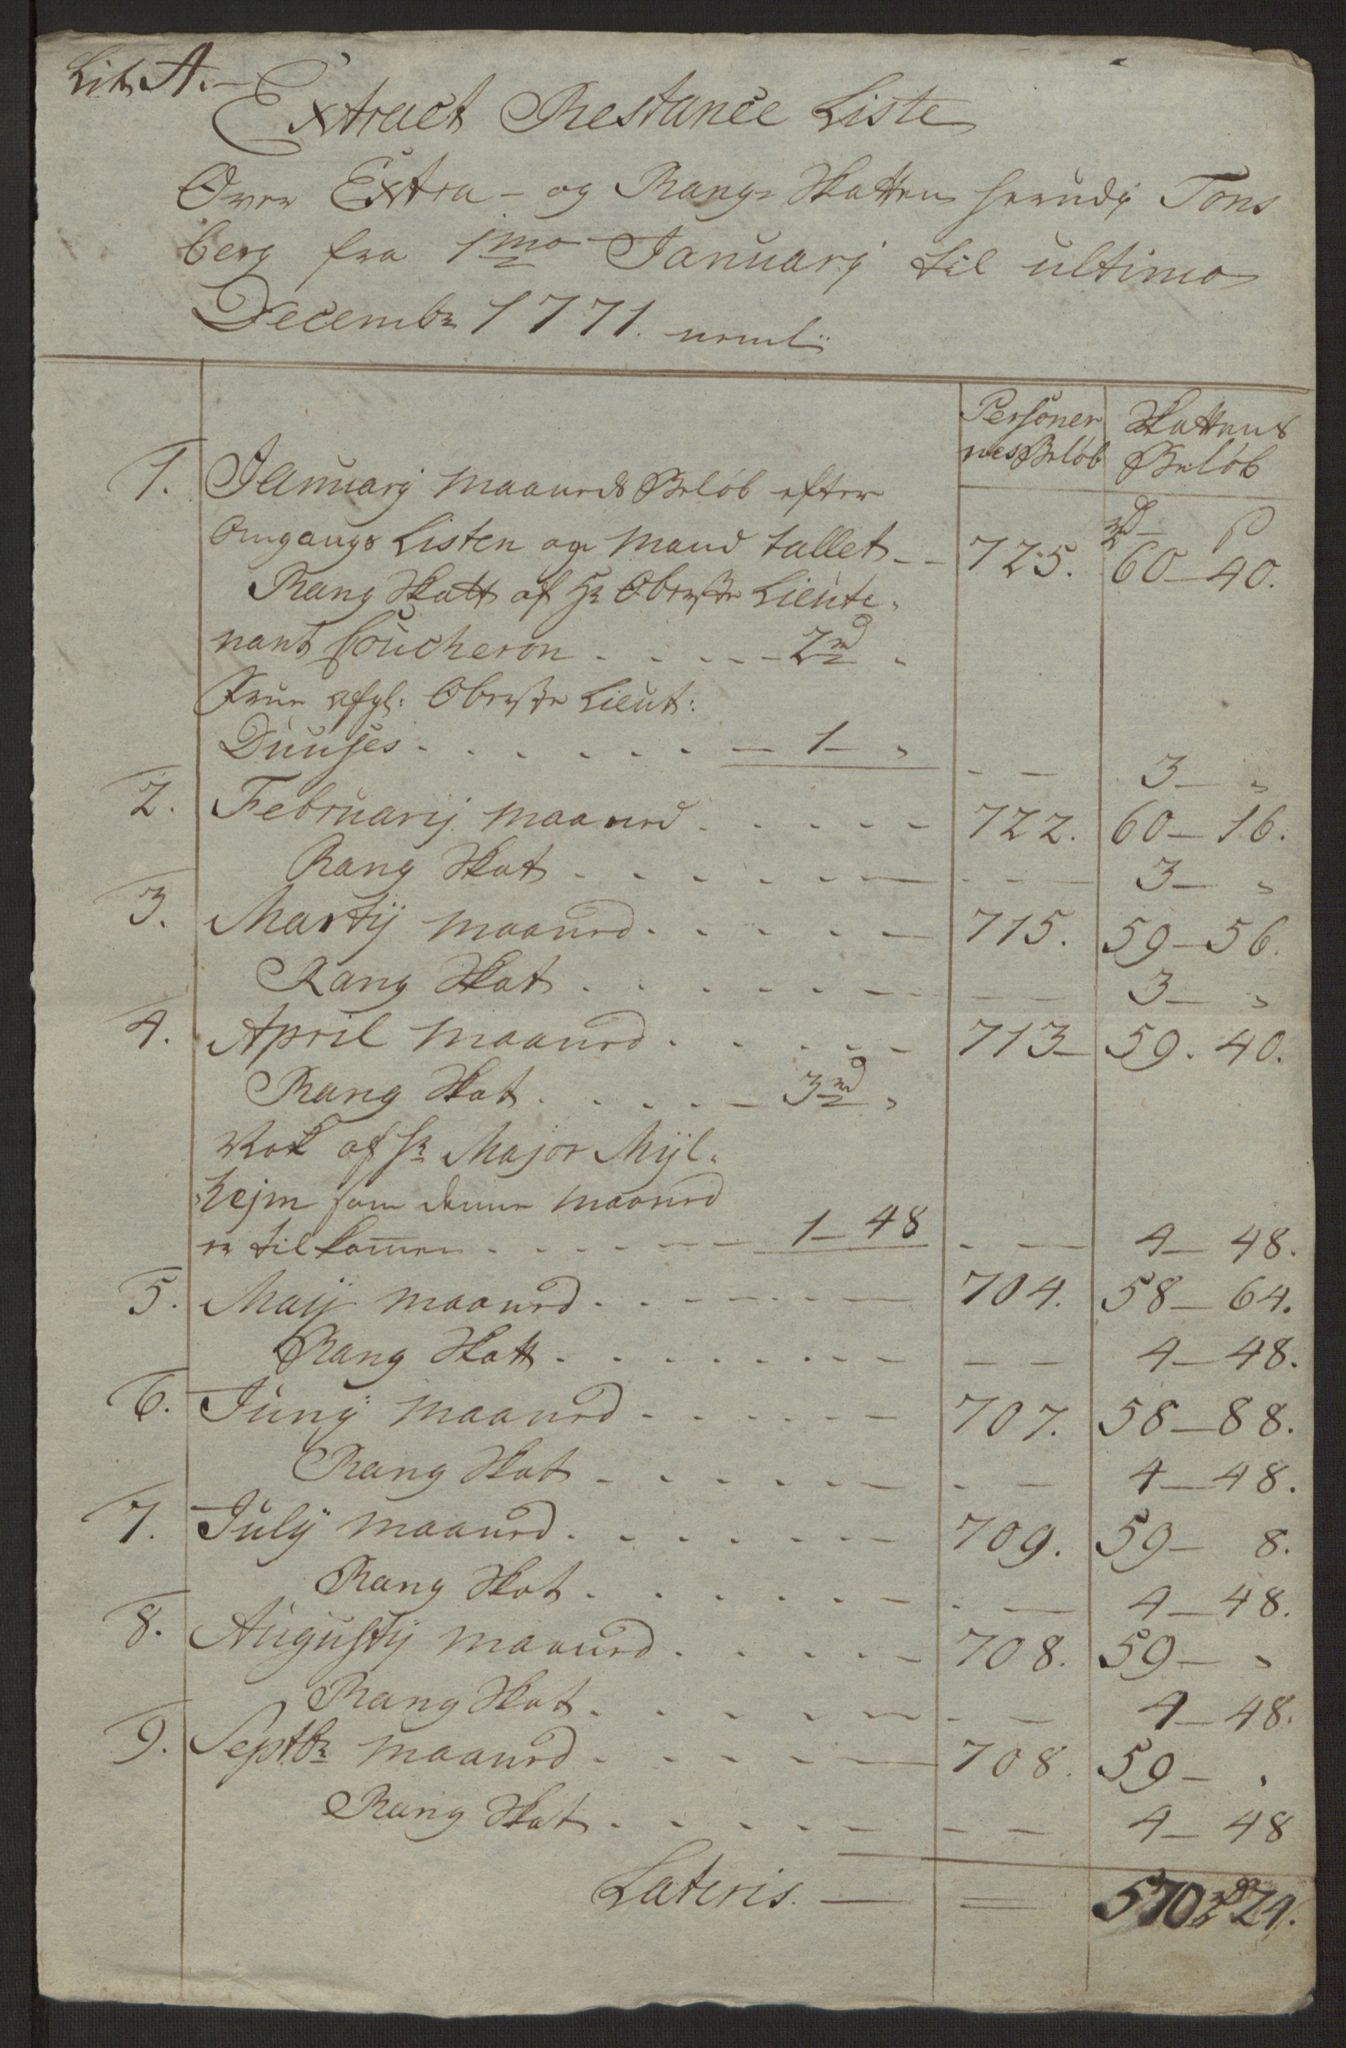 Lit A.
Extract Restance Liste
Over Extra- og Rang-Skatten herudj Tons
berg fra 1mo Januarj til ultimo
Decembr 1771. neml:
Personer Skattens
nes Beløb Beløb
1. Januarj Maaneds Beløb efter
Omgangs Listen og Mand tallet -- 725. 60 rd - 40 s.
Rang Skatt af Hr Oberste Lieute-
nant Coucheron . . . . - 2 rd "
Frue afgl: Oberste Lieut:
Duuses . . . . . . - 1 - " - - 3 - "
2. Februarij Maaned . . . . - 722. 60 - 16.
Rang Skat . . . . . - - - 3 - "
3. Martij Maaned . . . . . - 715. 59 - 56.
Rang Skat . . . . . . - - - 3 - "
4. April Maaned . . . . - 713 - 59. 40.
Rang Skat . . . . - 3 rd "
Item af Hr Major Myl-
hejm som denne Maaned
er tilkommen . . . . . - 1 - 48 - - 4 - 48.
5. Maij Maaned . . . . . - 704. 58 - 64.
Rang Skatt . . . . . . - - - 4 - 48.
6. Junij Maaned . . . . . - 707. 58 - 88.
Rang Skat . . . . . . - - - 4 - 48.
7. Julij Maaned . . . . . - 709. 59 - 8.
Rang Skat . . . . . . - - - 4 - 48.
8. Augustij Maaned . . . . - 708. 59 - "
Rang Skat . . . . . - - - 4 - 48.
9. Septbr Maaned . . . . . - 708. 59 - "
Rang Skat . . . . . - - - 4 - 48
Lateris. — = 570 rd 24.